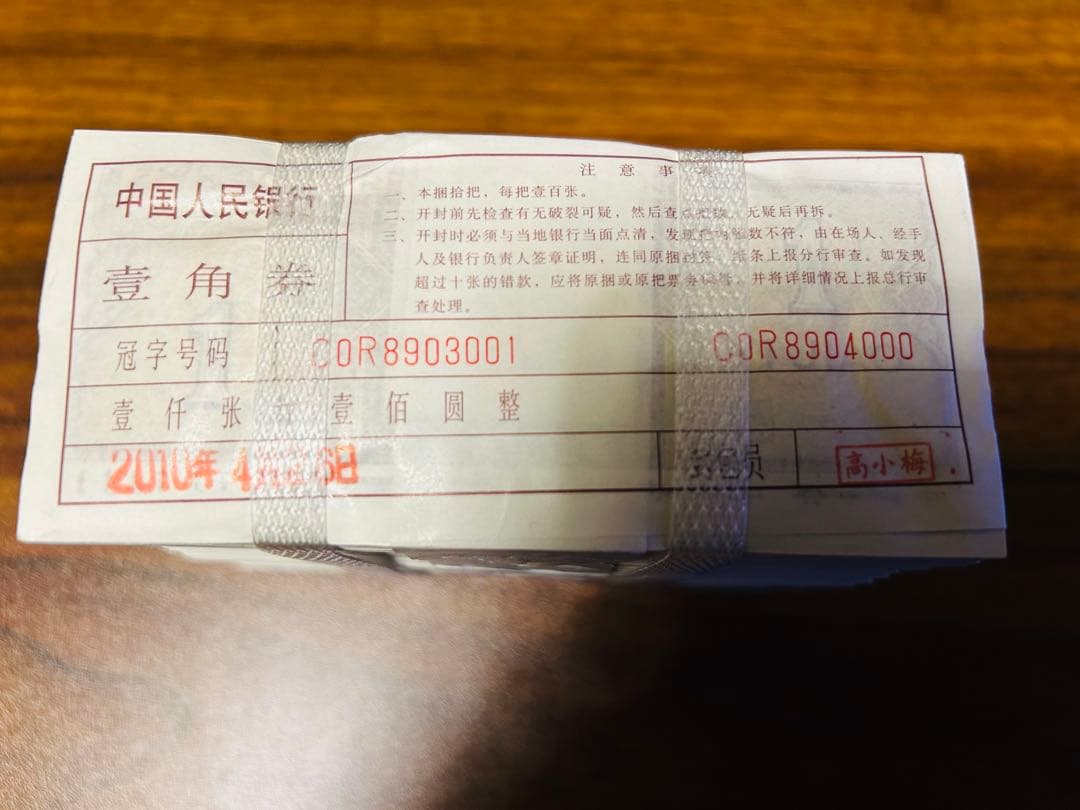 中国人民银行
壹角券
注意事
一、本捆拾把，每把壹百张。
二、开封前先检查有无破裂可疑，然后查点把数、无疑后再拆。
三、开封时必须与当地银行当面点清，发现把内张数不符，由在场人、经手
人及银行负责人签章证明，连同原捆封签、纸条上报分行审查。如发现
超过十张的错款，应将原捆或原把票券保管，并将详细情况上报总行审
查处理。
冠字号码 C0R8903001 C0R8904000
壹仟张 壹佰圆整
2010年4月 6日 封包员 高小梅